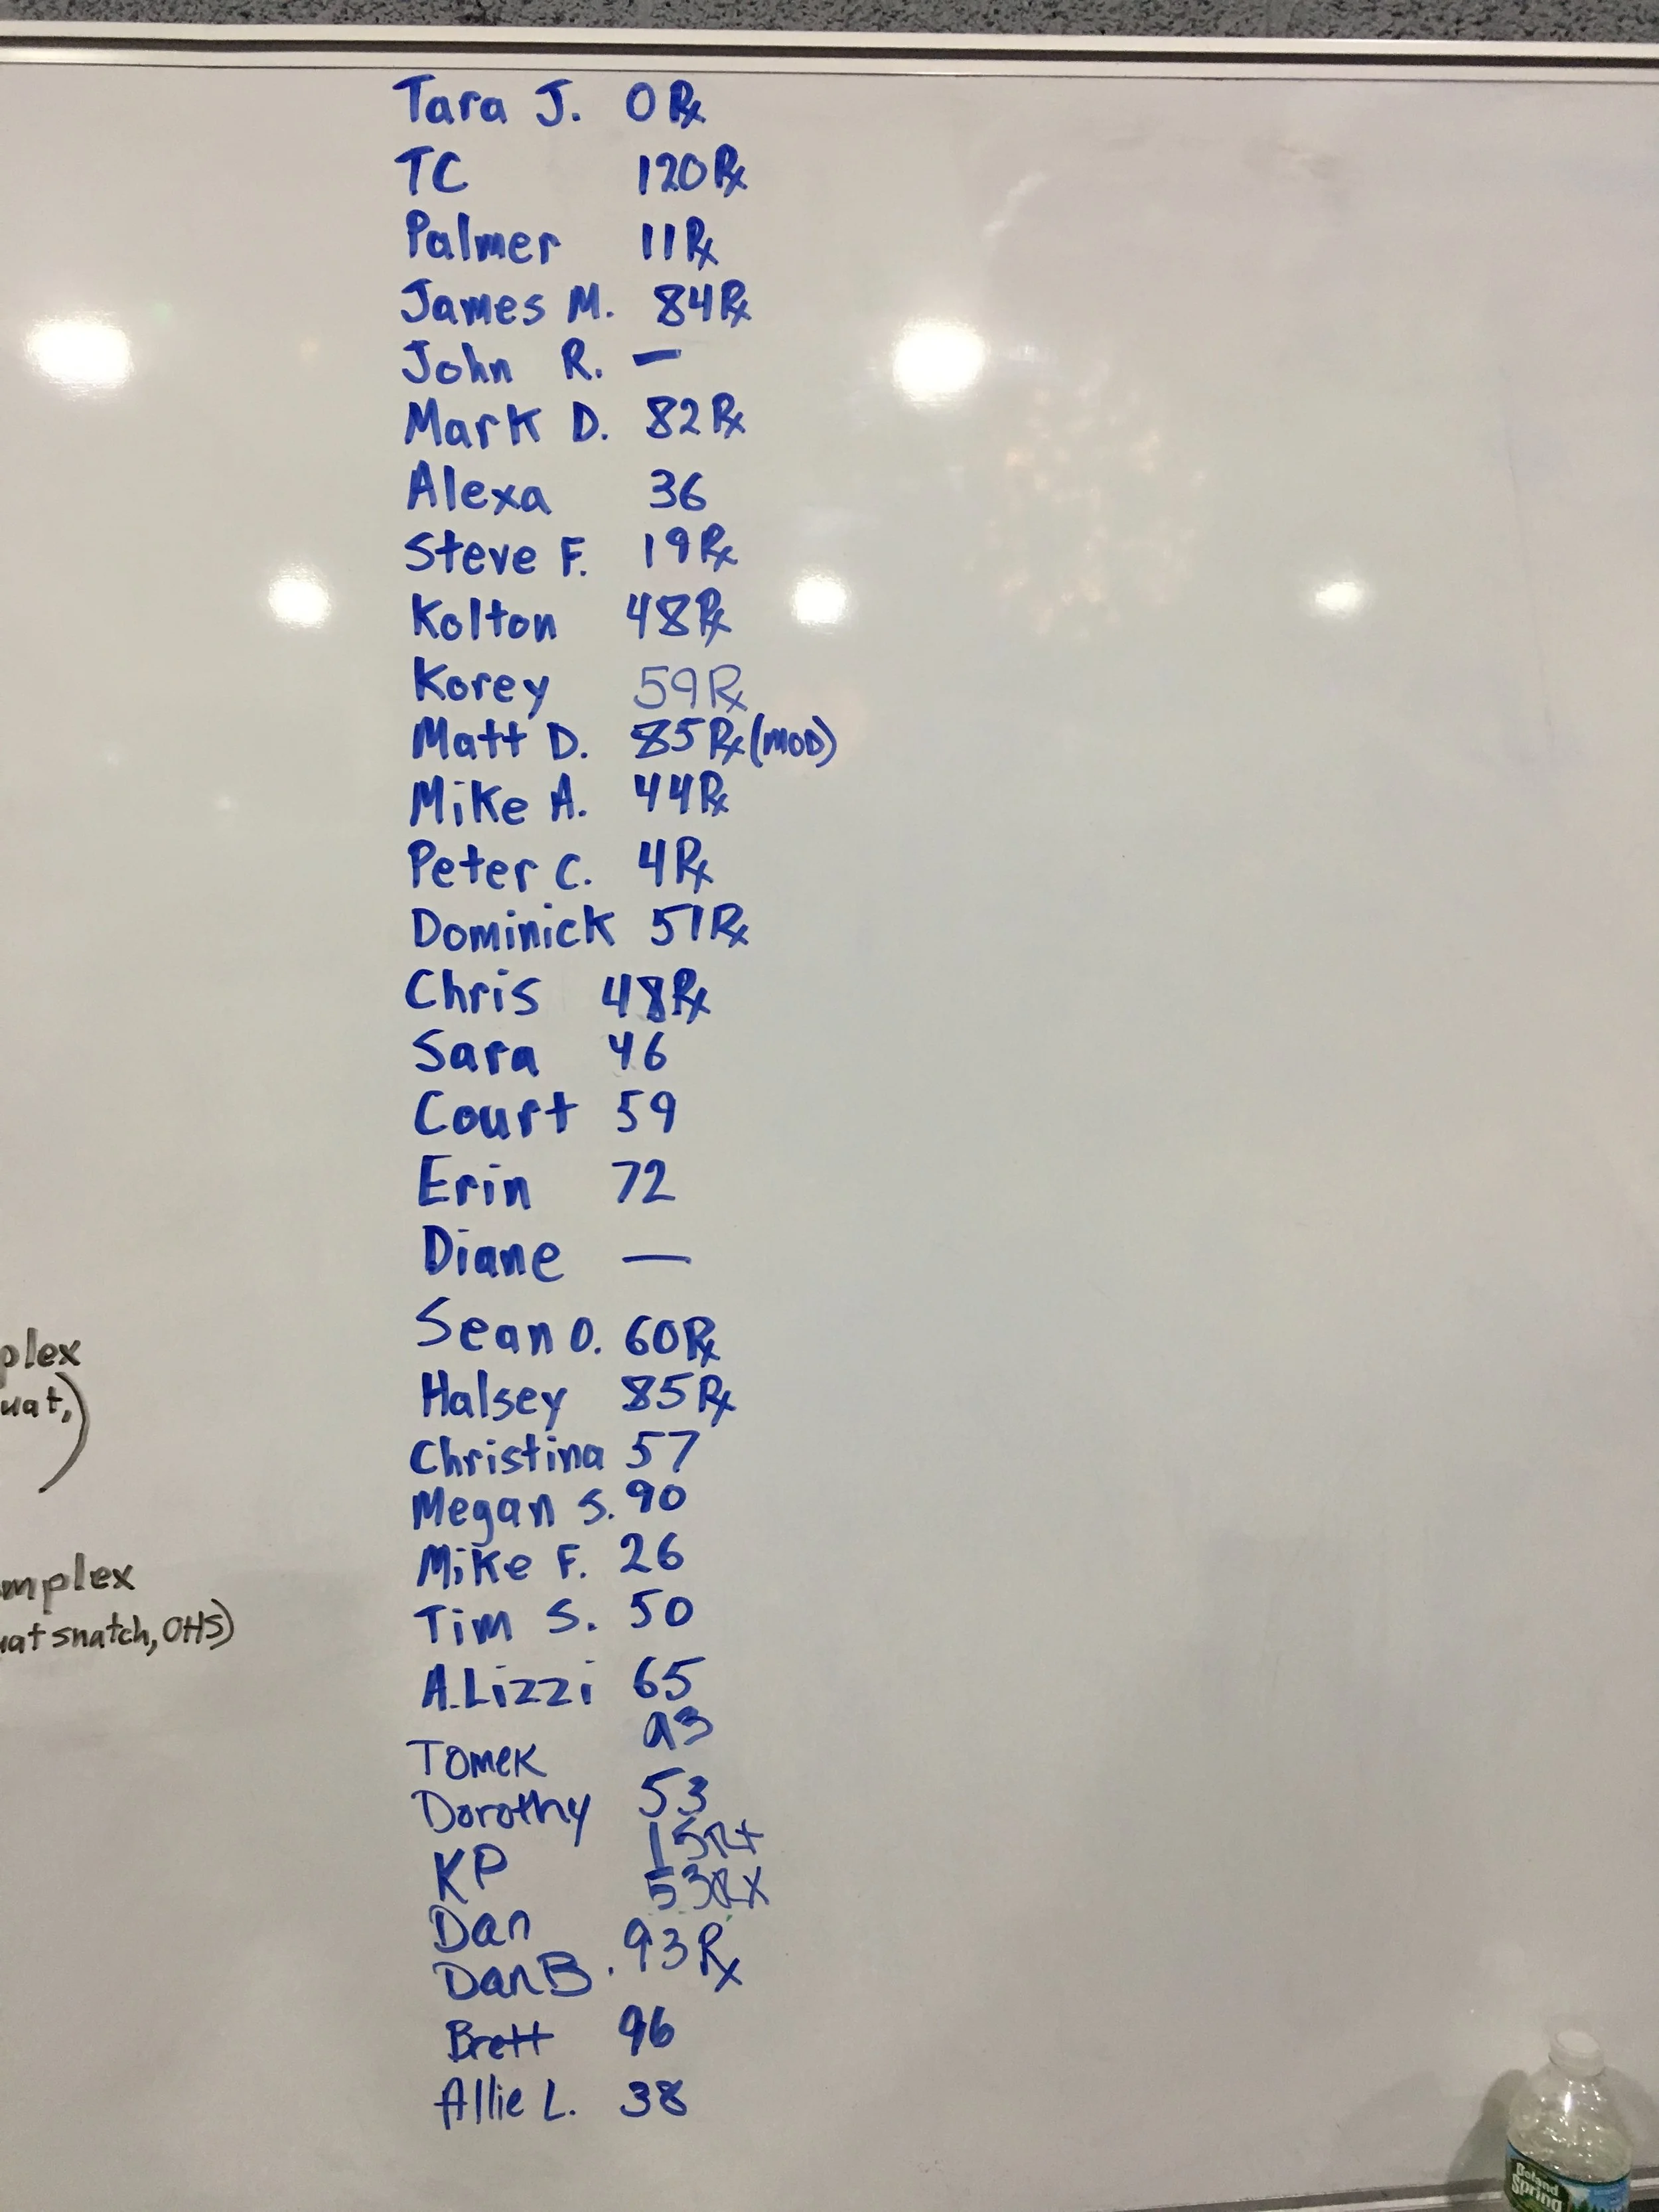 Tara J. 0 Rx
TC 120 Rx
Palmer 11 Rx
James M. 84 Rx
John R. —
Mark D. 82 Rx
Alexa 36
Steve F. 19 Rx
Kolton 48 Rx
Korey 59 Rx
Matt D. 85 Rx (MOD)
Mike A. 44 Rx
Peter C. 4 Rx
Dominick 51 Rx
Chris 48 Rx
Sara 46
Court 59
Erin 72
Diane —
Sean O. 60 Rx
Halsey 85 Rx
Christina 57
Megan S. 90
Mike F. 26
Tim S. 50
A.Lizzi 65
Tomek 93
Dorothy 53
KP 15 Rx
Dan 53 Rx
Dan B. 93 Rx
Brett 96
Allie L. 38
plex
uat,)
mplex
uat snatch, OHS)
Poland
Spring